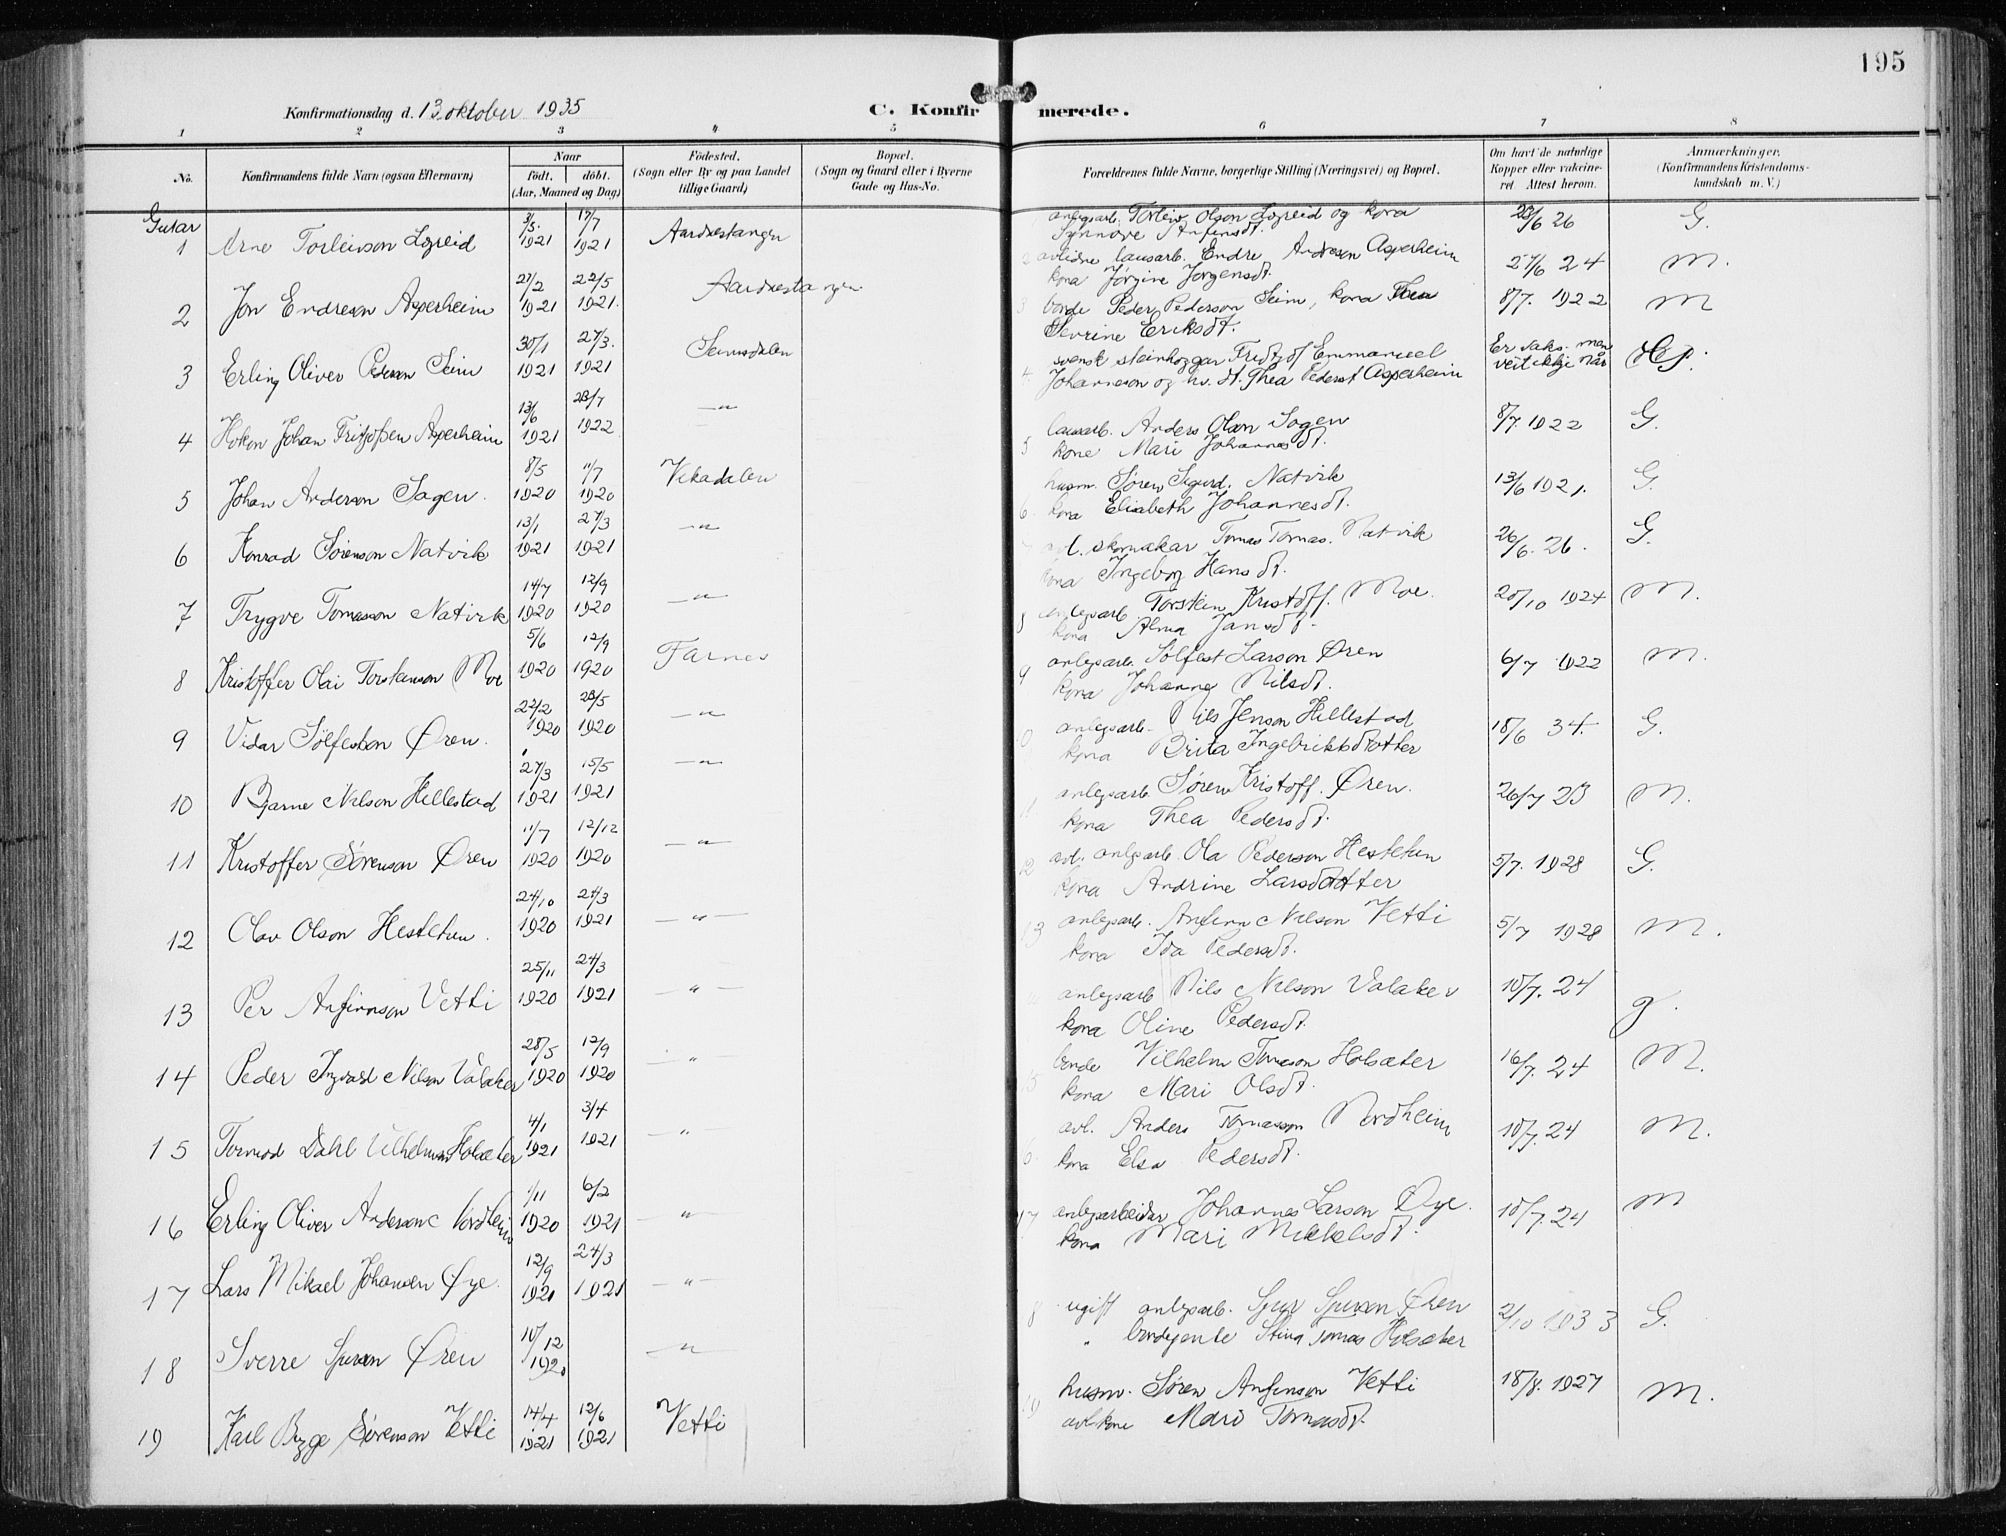 195
Konfirmationsdag d. 13. oktober 1935
C. Konfir merede.
1 2 3 4 5 6 7 8
No.
Konfirmandens fulde Navn (ogsaa Efternavn)
Naar
født. døbt.
(Aar, Maaned og Dag)
Fødested.
(Sogn eller By og paa Landet
tillige Gaard)
Bopæl.
(Sogn og Gaard eller i Byerne
Gade og Hus-No.
Forældrenes fulde Navne, borgerlige Stilling (Næringsvei) og Bopæl.
Om havt de naturlige
Kopper eller vakcine-
ret. Attest herom.
Anmærkninger.
(Konfirmandens Kristendoms-
kundskab m. V.)
Gutar
1 Arne Torleivson Lægreid 3/5. 1921 17/7 1921 Aardalstangen
anlegsarb. Torleiv Olson Lægreid og kona
Synnøve Anfinsdt. 23/6 26 G.
2 Jon Endreson Asperheim 27/2 1921 22/5 1921. Aardalstangen
avlidne lausarb. Endre Andreson Asperheim
kona Jørgine Jørgensdt. 27/6 24 M.
3 Erling Oliver Pederson Seim 30/1 1921 27/3. 1921 Seimsdalen
bonde Peder Pederson Seim, kona Thea
Sevrine Eriksdt. 8/7. 1922 M
4 Hokon Johan Fritjofsen Asperheim 13/6 1921 23/7 1922 —〃—
svensk steinhoggar Fridtjof Emmanuel
Johanneson og hv. dt. Thea Pedersdt Asperheim Er vaks. men
veit ikkje når
5 Johan Anderson Sagen. 8/5 1920 11/7 1920 Vikadalen
lausarb. Anders Olson Sagen
kone Mari Johannesdt. 8/7. 1922 G.
6 Konrad Sørenson Natvik 13/1 1921 27/3 1921 —〃—
husm. Søren Sigurd. Natvik
kona Elisabeth Johannesdt. 13/6 1921. G.
7 Trygve Tomasson Natvik 14/7 1920 12/9 1920 —〃—
avl. skomakar Tomas Tomas. Natvik
kona Ingeborg Hansdt. 26/6. 26. G.
8 Kristoffer Olai Torstenson Moe 5/6 1920 12/9 1920 Farnes
anlegsarb. Torstein Kristoff. Moe.
kona Alma Jansdt. 20/10 1924 M.
9 Vidar Sølfestson Øren. 22/2 1920 23/5 1920 —〃—
anlegsarb. Sølfest Larson Øren
kona Johanne Nilsdt. 6/7 1922 M.
10 Bjarne Nilson Hillestad 27/3 1921 15/5 1921 —〃—
anlegsarb. Nils Jenson Hillestad
kona Brita Ingebriktsdotter 18/6 34. G.
11 Kristoffer Sørenson Øren 11/7 1920 12/12 1920 —〃—
anlegsarb Søren Kristoff. Øren.
kona Thea Pedersdt. 26/7 23 M.
12 Olav Olson Hestetun. 24/10 1920 24/3 1921 —〃—
avl. anlegsarb. Ola Pederson Hestetun
kona Andrine Larsdotter 5/7. 1928 G.
13 Per Anfinnson Vetti 25/11 1920 24/3 1921 —〃—
anlegsarb. Anfinn Nilson Vetti
kona Ida Pedersdt. 5/7 1928 M.
14 Peder Ingvald Nilson Valaker 28/5 1920 12/9 1920 —〃—
anlegsarb Nils Nilson Valaker
kona Oline Pedersdt. 10/7. 24 g.
15 Tormod Dahl Vilhelmson Holsæter 4/1 1921 3/4 1921 —〃—
bonde Vilhelm Tomason Holsæter
kona Mari Olsdt. 16/7. 24 M.
16 Erling Oliver Anderson Nordheim 1/11 1920 6/2 1921 —〃—
avl. Anders Tomasson Nordheim
kona Elsa Pedersdt. 10/7. 24 M.
17 Lars Mikael Johansen Øye. 12/9 1920 24/3 1921 —〃—
anlegsarbeidar Johannes Larson Øye.
kona Mari Mikkelsdt. 10/7. 24 M
18 Sverre Sjurson Øren 10/12 1920 —〃—
ugift anlegsarb. Sjur Sjurson Øren
〃 bondejente Stina Tomas Holsæter 2/10 1933 G.
19 Karl Bygge Sørenson Vetti 14/4 1921 12/6 1921 Vetti
husm. Søren Anfinson Vetti
avl. kone Mari Tomasdt. 18/8. 1927 M.